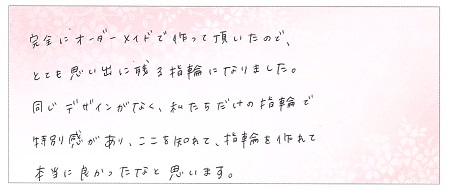 完全にオーダーメイドで作って頂いたので、
とても思い出に残る指輪になりました。
同じデザインがなく、私たちだけの指輪で
特別感があり、ここを知れて、指輪を作れて
本当に良かったなと思います。